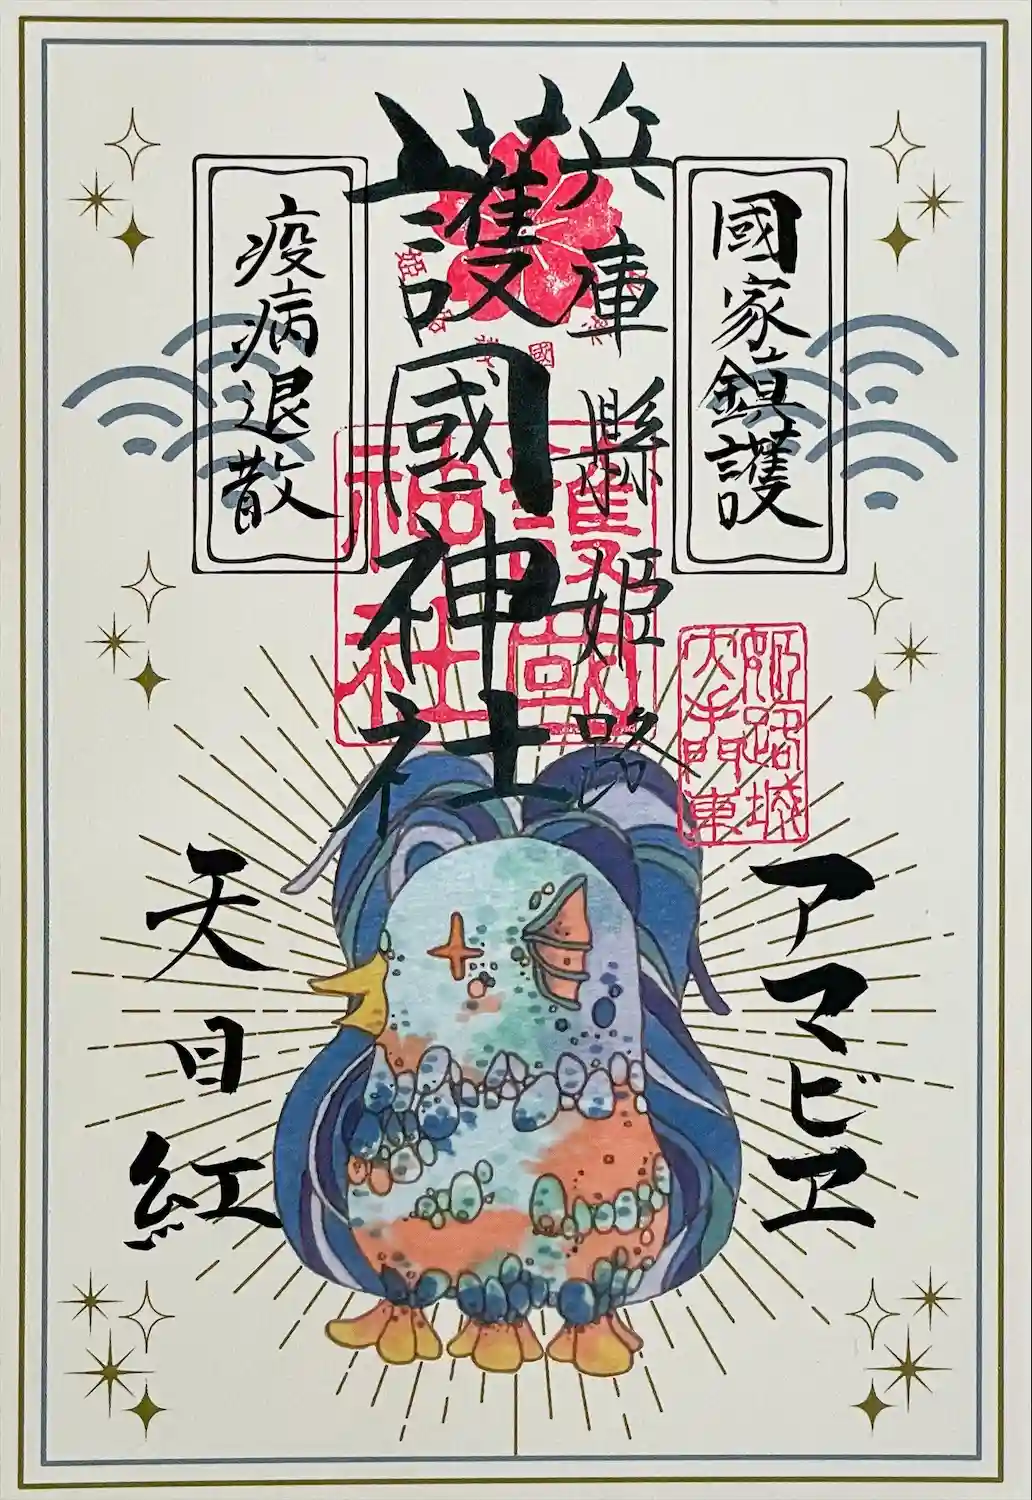 國家鎮護
兵庫縣姫路
護國神社
疫病退散
護國
神社
姫路城
大手門東
アマビヱ
天目紅